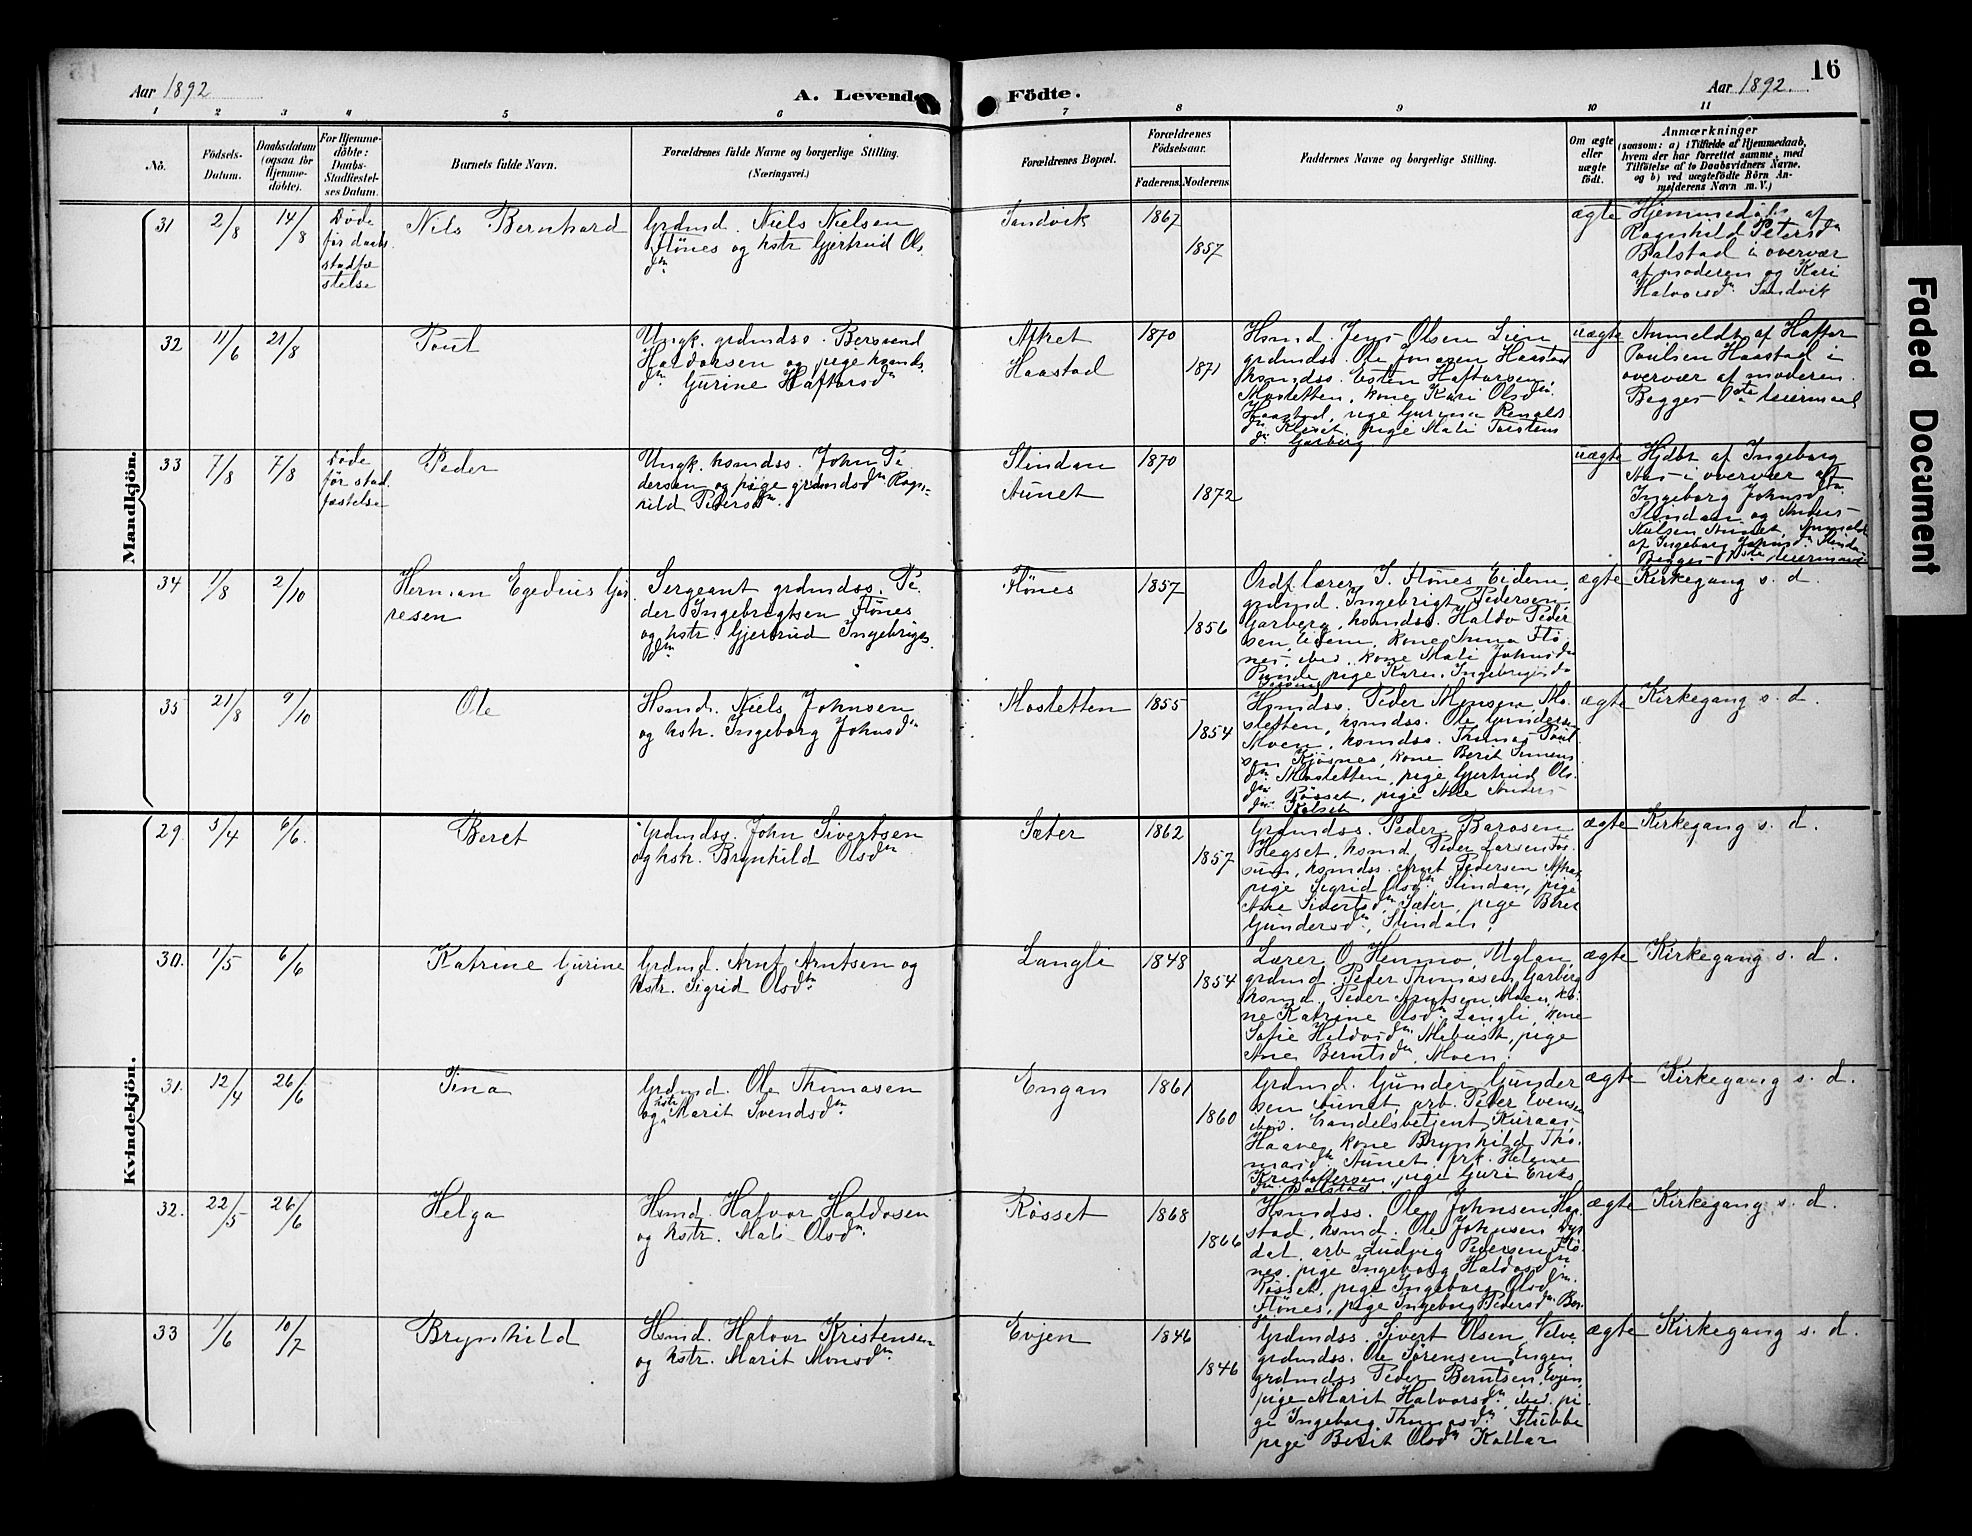 16
Aar 1892
A. Levende Födte.
Aar 1892.
1 2 3 4 5 6 7 8 9 10 11
Nö.
Födsels-
Datum.
Daabsdatum
(ogsaa for
Hjemme-
döbte).
For Hjemme-
döbte:
Daabs-
Stadfæstel-
ses Datum.
Barnets fulde Navn.
Forældrenes fulde Navne og borgerlige Stilling.
(Næringsvei.)
Forældrenes Bopæl.
Forældrenes
Födselsaar.
Faderens.
Moderens.
Faddernes Navne og borgerlige Stilling.
Om ægte
eller
uægte
født.
Anmærkninger
(saasom: a) i Tilfælde af Hjemmedaab,
hvem der har forrettet samme, med
Tilföielse af to Daabsvidners Navne.
og b) ved uægtefödte Börn An-
melderens Navn m. V.)
Mandkjön.
31
2/8
14/8
Døde
før daabs
stadfæ
stelse
Nils Bernhard
Grdmd. Niels Nielsen
Flönes og hstr Gjertrud Ols
dn
Sandvik
1867
1857
ægte
Hjemmedøbt af
Ragnhild Petersdn
Balstad i overvær
af moderen og Kari
Halvorsdn Sandvik
32
11/6
21/8
Poul
Ungk. grdmdss. Bersvend
Haldorsen og pige hsmds
dn Gurine Haftorsdn
Aftret
Haastad
1870
1871
Hsmd. Jens Olsen Lien
grdmdss. Ole Jonasen Haastad
hsmdss. Esten Haftorsen
Mosletten, kone Kari Olsdn
Haastad, pige Gurina Renalds
dn Klevet, pige Mali Torstens
dn Garberg
uægte
Anmeldt af Haftor
Poulsen Haastad i
overvær af moderen.
Begges 1ste leiermaal
33
7/8
7/8
Døde
før stad
fæstelse
Peder
Ungk. hsmdss. John Pe
dersen og pige grdmdsdn Ragn-
hild Pedersdn
Slindan
Aunet
1870
1872
uægte
Hjdbt af Ingeborg
Aas i overvær af
Ingeborg Johnsdtn
Slindan og Anders
Nielsen Aunet. Anmeldt
af Ingeborg Johnsdn Slindan
Begges 1ste leiermaal
34
1/8
2/10
Herman Egedius Gör
resen
Sergeant grdmdss. Pe
der Ingebrigtsen Flönes
og hstr. Gjertrud Ingebrigts
dn
Flönes
1857
1856
Ordf. lærer J. Flönes Eidem,
grdmd. Ingebrigt Pedersen
Garberg, hsmdss. Haldo Peder
sen Eidem, kone Anna Flö
nes, ibid, kone Mali Johnsdn
Punde, pige Karen Ingebrigtsdn
ægte
Kirkegang s. d.
35
21/8
9/10
Ole
Hsmd. Niels Johnsen
og hstr. Ingeborg Johnsdn
Mosletten
1855
1854
Hsmdss. Peder Monsen Mo
sletten, hsmdss. Ole Gundersen
Moen, hsmdss. Thomas Poul
sen Kjøsnes, kone Berit Simens
dn Mosletten, pige Gjertrud Ols
dn Røsset, pige Ane Anders
dn
ægte
Kirkegang s. d.
Kvindekjön.
29.
5/4
6/6.
Beret
Grdmdss. John Sivertsen
og hstr. Brynhild Olsdn
Sæter
1862
1857
Grdmdss. Peder Barosen
Hegset, hsmd. Peder Larsen Fos
sum, hsmdss. Arnt Pedersen Aftret
pige Sigrid Olsdn Slindan, pige
Ane Sivertsdn Sæter, pige Beret
Gundersdn, Slindan.
ægte
Kirkegang s. d.
30.
1/5
6/6
Katrine Gurine
Grdmd. Arnt Arntsen og
hstr. Sigrid Olsdn
Langli
1848
1854
Lærer O. Henmo, Uglan,
grdmd. Peder Thomasen, Garberg
hsmd. Peder Arntsen Moen, ko-
ne Katrine Olsdn Langli, kone
Sofie Haldosdn Mebust, pige
Ane Berntsdn Moen.
ægte
Kirkegang s. d.
31.
12/4
26/6
Tina
Grdmd. Ole Thomasen
og hstr Marit Svendsdn
Engan
1861
1860
Grdmd. Gunder Gunder
sen Aunet, arb. Peder Evensen
ibid. Handelsbetjent Kuraas,
Haave, kone Brynhild Tho-
masdn Aunet, frk. Helene
Kristoffersen, pige Guri Eriks
dn Balstad
ægte
Kirkegang s. d.
32.
22/5
26/6
Helga
Hsmd. Halvor Haldosen
og hstr. Mali Olsdn
Røsset
1868
1866
Hsmdss. Ole Johnsen Haa
stad, hsmd. Ole Johnsen Dyr
dal, arb. Ludvig Pedersen Flö
nes, pige Ingeborg Haldosdn
Røsset, pige Ingeborg Olsdn
Flönes, pige Ingeborg Pedersdn Bor
ægte
Kirkegang s. d.
33
1/6
10/7
Brynhild
Hsmd. Halvor Kristensen
og hstr. Marit Monsdn
Evjen
1846
1846
Grdmdss. Sivert Olsen Velve
grdmdss. Ole Sørensen Engen
grdmdss Peder Berntsen Evjen
pige Marit Halvorsdn, ibid. pi-
ge Ingeborg Thomasdn Stubbe
pige Berit Olsdn Kallar
ægte
Kirkegang s. d.
Faded Document